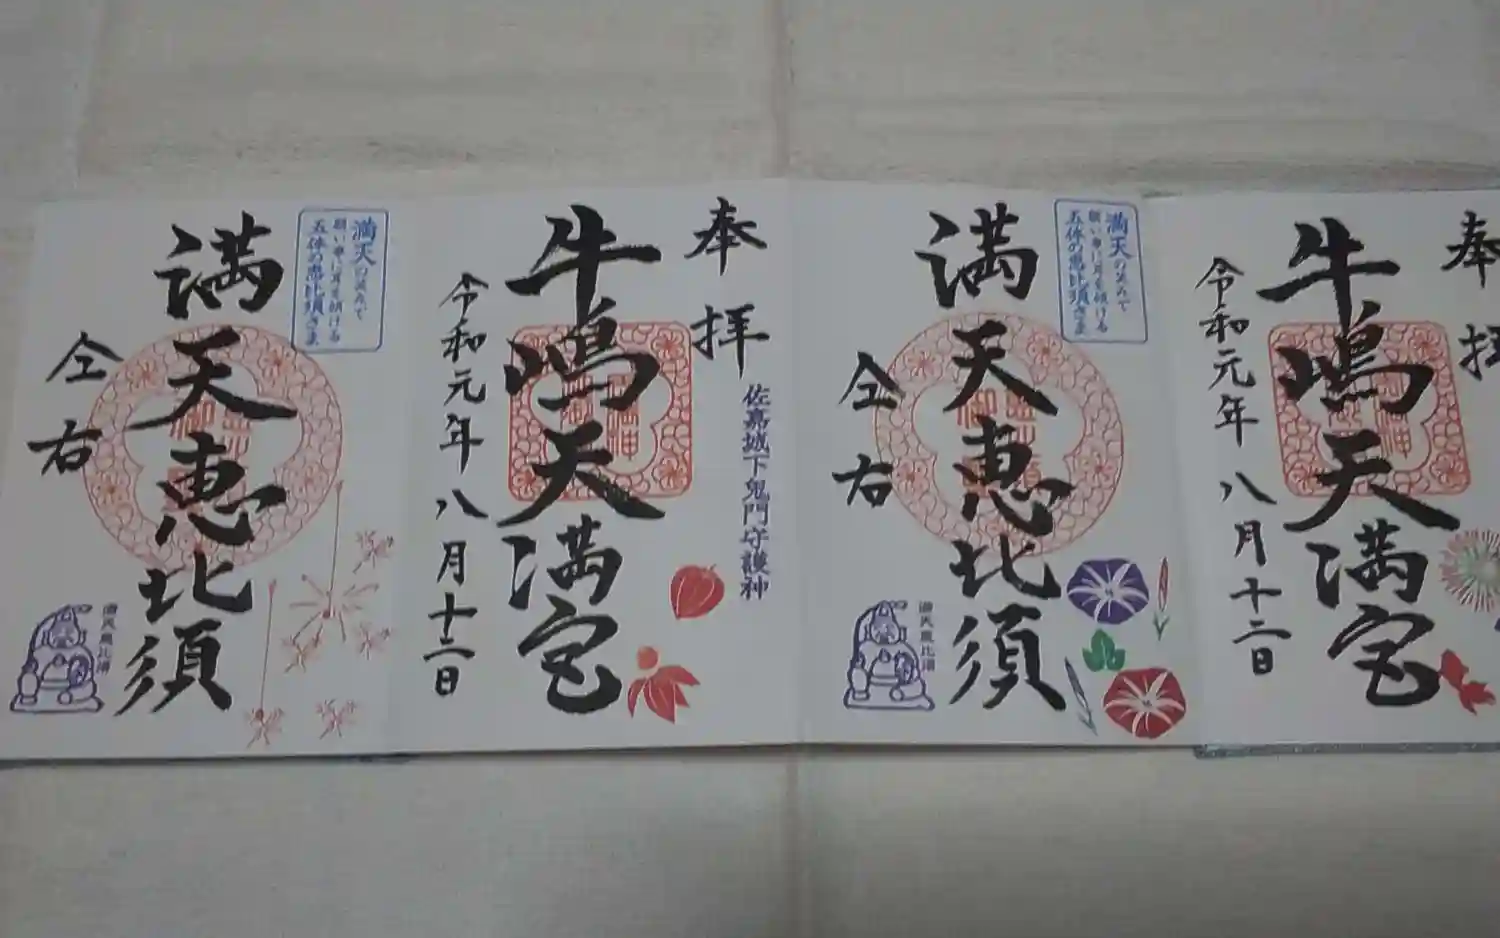 奉拝
佐嘉城下鬼門守護神
牛嶋天満宮
令和元年八月十二日
満天の笑みで
願い事に耳を傾ける
五体の恵比須さま
満天恵比須
仝右
満天恵比須
奉拝
牛嶋天満宮
令和元年八月十二日
満天の笑みで
願い事に耳を傾ける
五体の恵比須さま
満天恵比須
仝右
満天恵比須